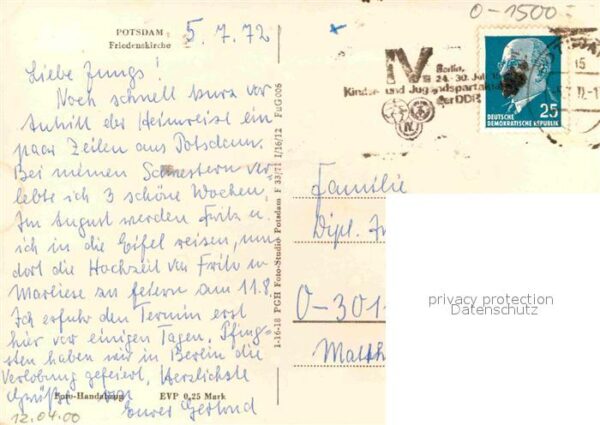 POTSDAM
Friedenskirche
5.7.72
Liebe Jungs!
Noch schnell kurz vor
Antritt der Heimreise ein
paar Zeilen aus Potsdam.
Bei meinen Schwestern ver
lebte ich 3 schöne Wochen.
Im August werden Fritz u.
ich in die Eifel reisen, um
dort die Hochzeit von Fritz u
Marliese zu feiern am 11.8.
Ich erfuhr den Termin erst
hier vor einigen Tagen. Pfing-
sten haben wir in Berlin die
Verlobung gefeiert. Herzlichste
Grüße von
Eurer
Foto-Handabzug EVP 0,25 Mark
12.04.00
1-16-18 PGH Foto-Studio Potsdam F 33/71 I/16/12 FuG 006
0-1500
IV.
Berlin,
24.-30. Jul
Kinder- und Jugendspartakiade
der DDR
25
DEUTSCHE
DEMOKRATISCHE REPUBLIK
15
Familie
Dipl.
0-301
Matth
privacy protection
Datenschutz